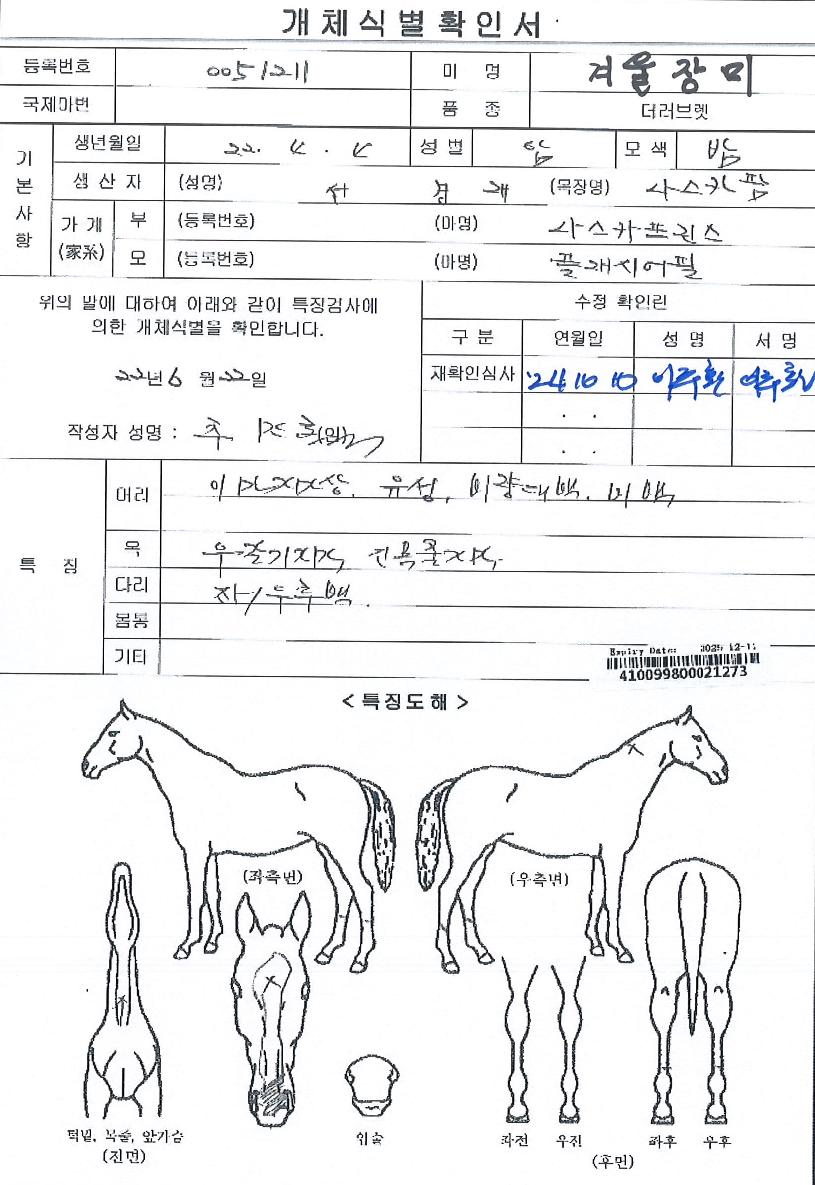 개체식별확인서
등록번호 0051211 마 명 겨울장미
국제마번 품 종 더러브렛
기본사항
생년월일 22. 4. 4 성별 암 모색 밤
생산자 (성명) (목장명) 사스카팜
가계(家系) 부 (등록번호) (마명) 사스카프린스
모 (등록번호) (마명) 플래시어필
위의 말에 대하여 아래와 같이 특징검사에
의한 개체식별을 확인합니다.
22년 6월 22일
작성자 성명 :
수정 확인린
구분 연월일 성명 서명
재확인심사 '24 10 10
. .
. .
특 징
머리 유성, 비량대백, 비백
목
다리 좌/우후백.
몸통
기타
Expiry Date: 2025-12-11
410099800021273
< 특징도해 >
(좌측면) (우측면)
턱밑, 목줄, 앞가슴
(전면)
입술
좌전 우전 좌후 우후
(후면)